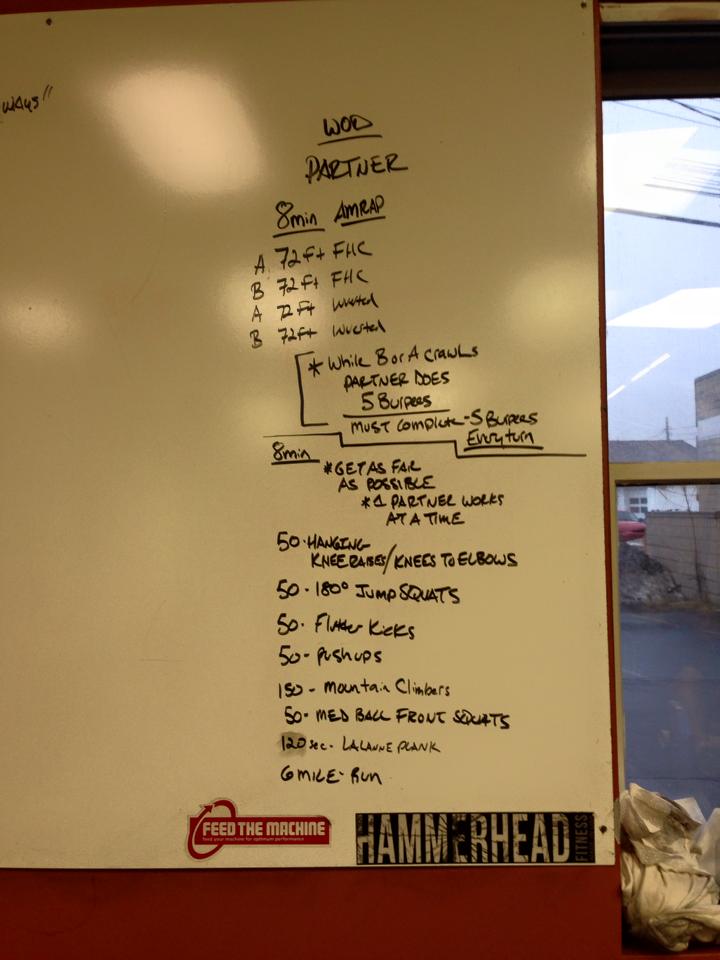 ways"
WOD
PARTNER
8min AMRAP
A 72ft FHC
B 72ft FHC
A 72ft Inverted
B 72ft Inverted
* While B or A crawls
PARTNER DOES
5 Burpees
MUST Complete - 5 Burpees
Every turn
8min
* GET AS FAR
AS POSSIBLE
* 1 PARTNER WORKS
AT A TIME
50 - HANGING
KNEE RAISES/KNEES TO ELBOWS
50 - 180° JUMP SQUATS
50 - Flutter Kicks
50 - Pushups
150 - Mountain Climbers
50 - MED BALL FRONT SQUATS
120 sec - LALANNE PLANK
6 MILE - RUN
FEED THE MACHINE
feed your machine for optimum performance
HAMMERHEAD
FITNESS